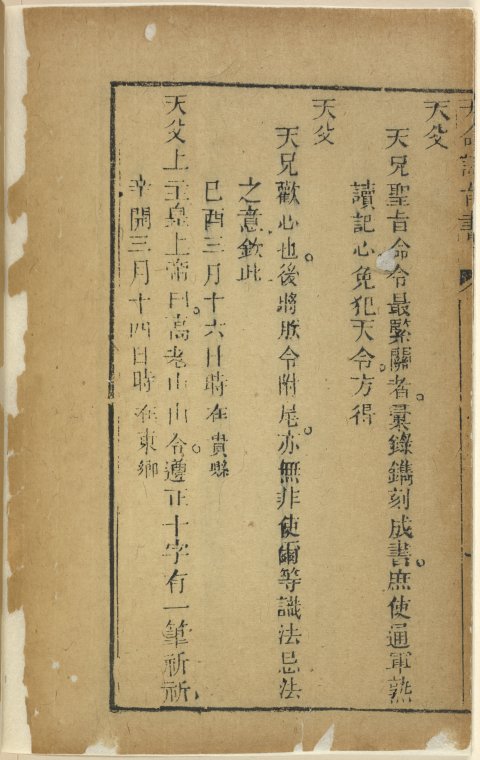 天命詔旨書
天父
天兄聖旨命令最緊關者彙錄鐫刻成書庶使通軍熟
讀記心免犯天令方得
天父
天兄歡心也後將朕令附尾亦無非使爾等識法忌法
之意欽此
己酉三月十六日時在貴縣
天父上主皇上帝曰高老山山令遵正十字有一筆祈祈
辛開三月十四日時在東鄉